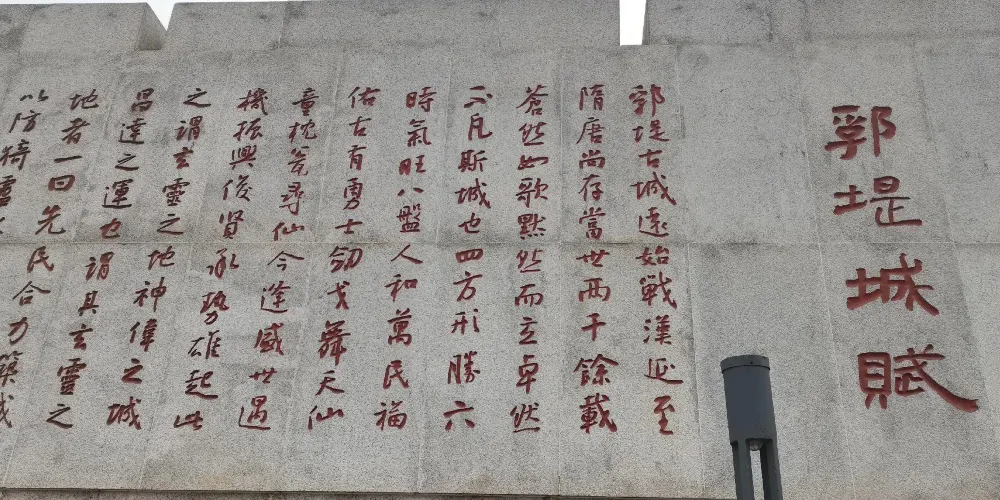 郛堤城賦
郛堤古城遠始戰漢延至
隋唐尚存當世两千餘載
蒼然如歌黙然而立卓然
不凡斯城也四方形勝六
時氣旺八盤人和萬民福
佑古有勇士劒戈舞天仙
童枕瓮尋仙今逢盛世遇
機振興俊賢承勢雄起此
之謂玄靈之地神偉之城
昌達之運也謂其玄靈之
地者一曰先民合力築城
以防犄